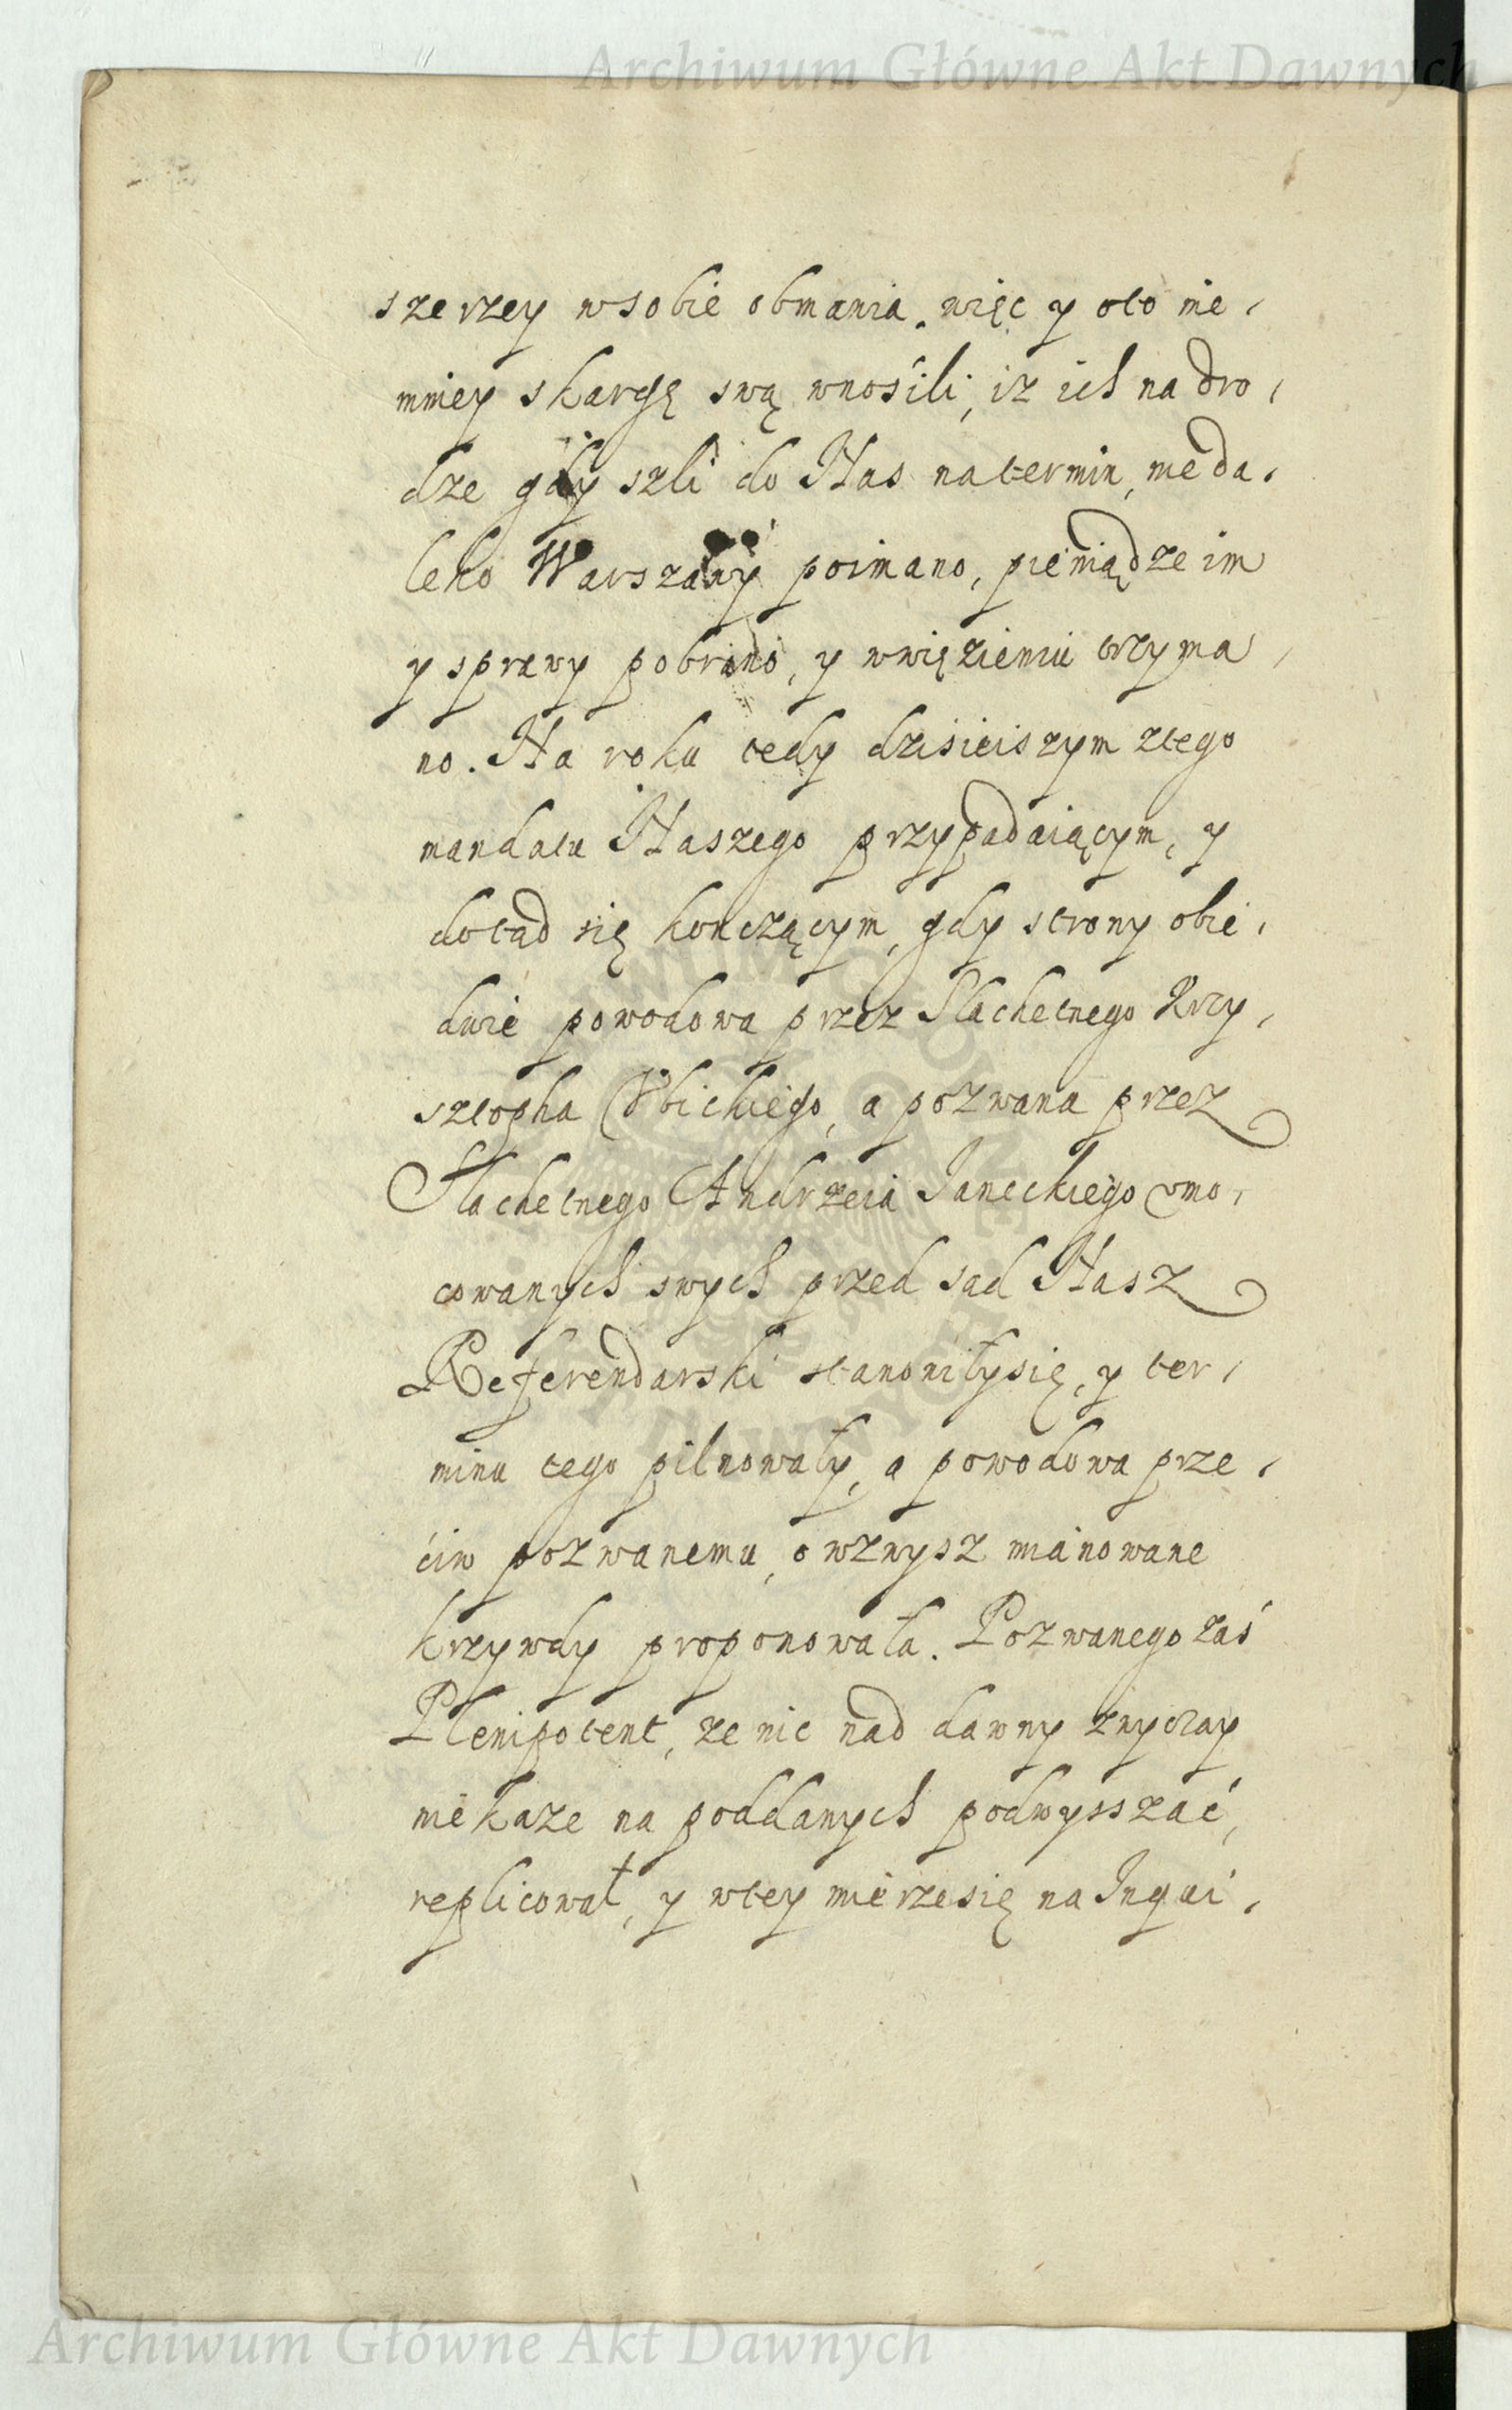 Archiwum Główne Akt Dawnych
szerzey w sobie obmawia. więc y oto nie,
mniey skargę swą wnośili, iz ich na dro,
dze gdy szli do Nas na termin, nieda,
leko Warszawy poimano, pieniądze im
y sprawy pobrano, y wwięzieniu trzyma,
no. Na roku tedy dzisieiszym ztego
mandatu Naszego przypadaiącym, y
dotąd się kończącym, gdy strony obie,
dwie powodowa przez Slachetnego Krzy,
sztopha Wbickiego, a pozwana przez
Slachetnego Andrzeia Janeckiego vmo,
cowanych swych przed sad Nasz
Referendarski stanowiły się, y ter,
minu tego pilnowały, a powodowa prze,
ciw pozwanemu, o wzwysz mianowane
krzywdy proponowała. Pozwanego zaś
Plenipotent, ze nic nad dawny zwyczay
niekaze na poddanych podwysszać,
replicował, y wtey mierze się na Inqui,
Archiwum Główne Akt Dawnych